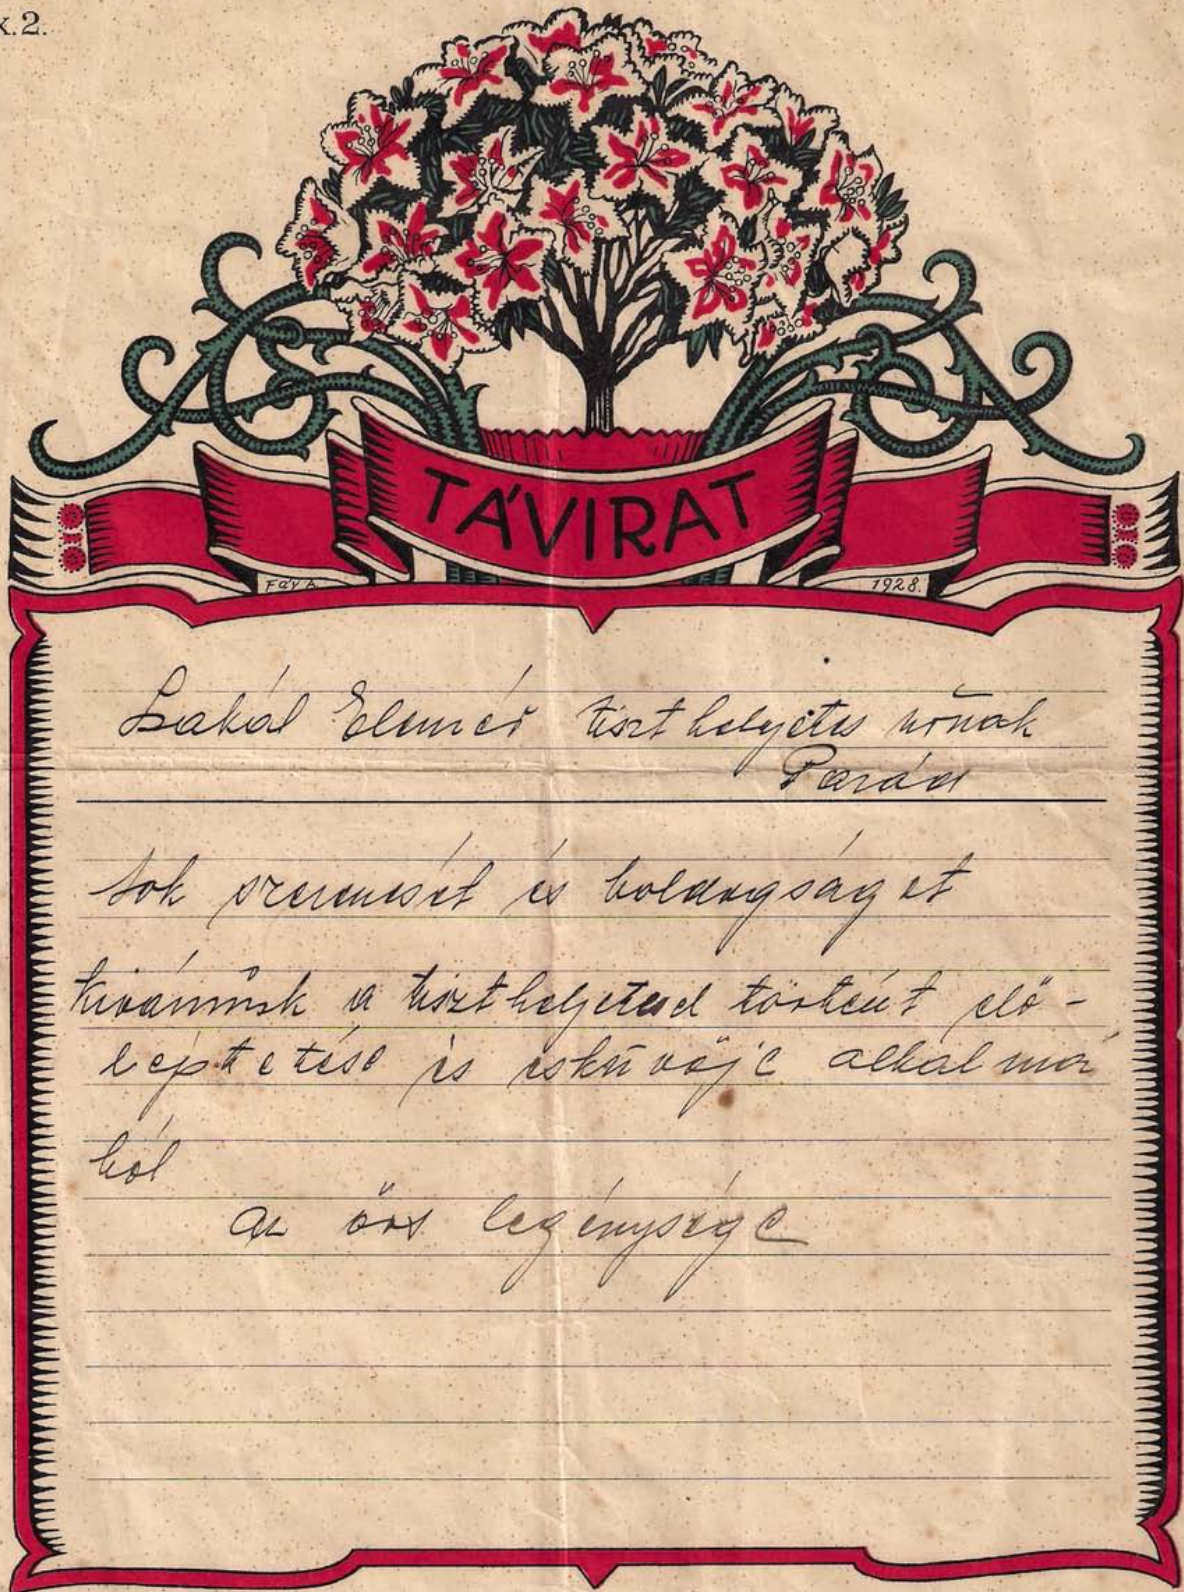 x.2.
TÁVIRAT
Fáy A.
1928.
Szakál Elemér tiszthelyettes úrnak
Parád
Sok szerencsét és boldogságot
kivánunk a tiszthelyettesé történt elő-
léptetése és esküvője alkalmá
ból
az őrs legénysége